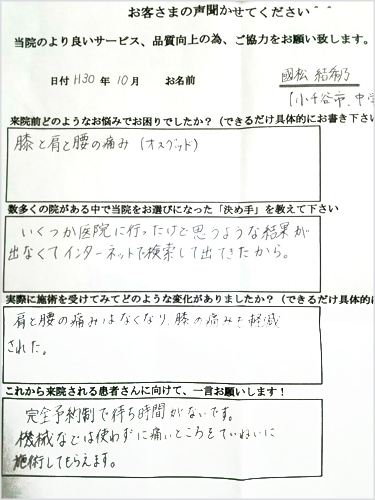 お客さまの声聞かせてください^^
当院のより良いサービス、品質向上の為、ご協力をお願い致します。
日付 H30 年 10 月 お名前 國松 結希乃
(小千谷市、中学
来院前どのようなお悩みでお困りでしたか?(できるだけ具体的にお書き下さい
膝と肩と腰の痛み (オスグット)
数多くの院がある中で当院をお選びになった「決め手」を教えて下さい
いくつか医院に行ったけど思うような結果が
出なくてインターネットで検索して出てきたから。
実際に施術を受けてみてどのような変化がありましたか?(できるだけ具体的に
肩と腰の痛みはなくなり、膝の痛みも軽減
された。
これから来院される患者さんに向けて、一言お願いします!
完全予約制で待ち時間がないです。
機械などは使わずに痛いところをていねいに
施術してもらえます。